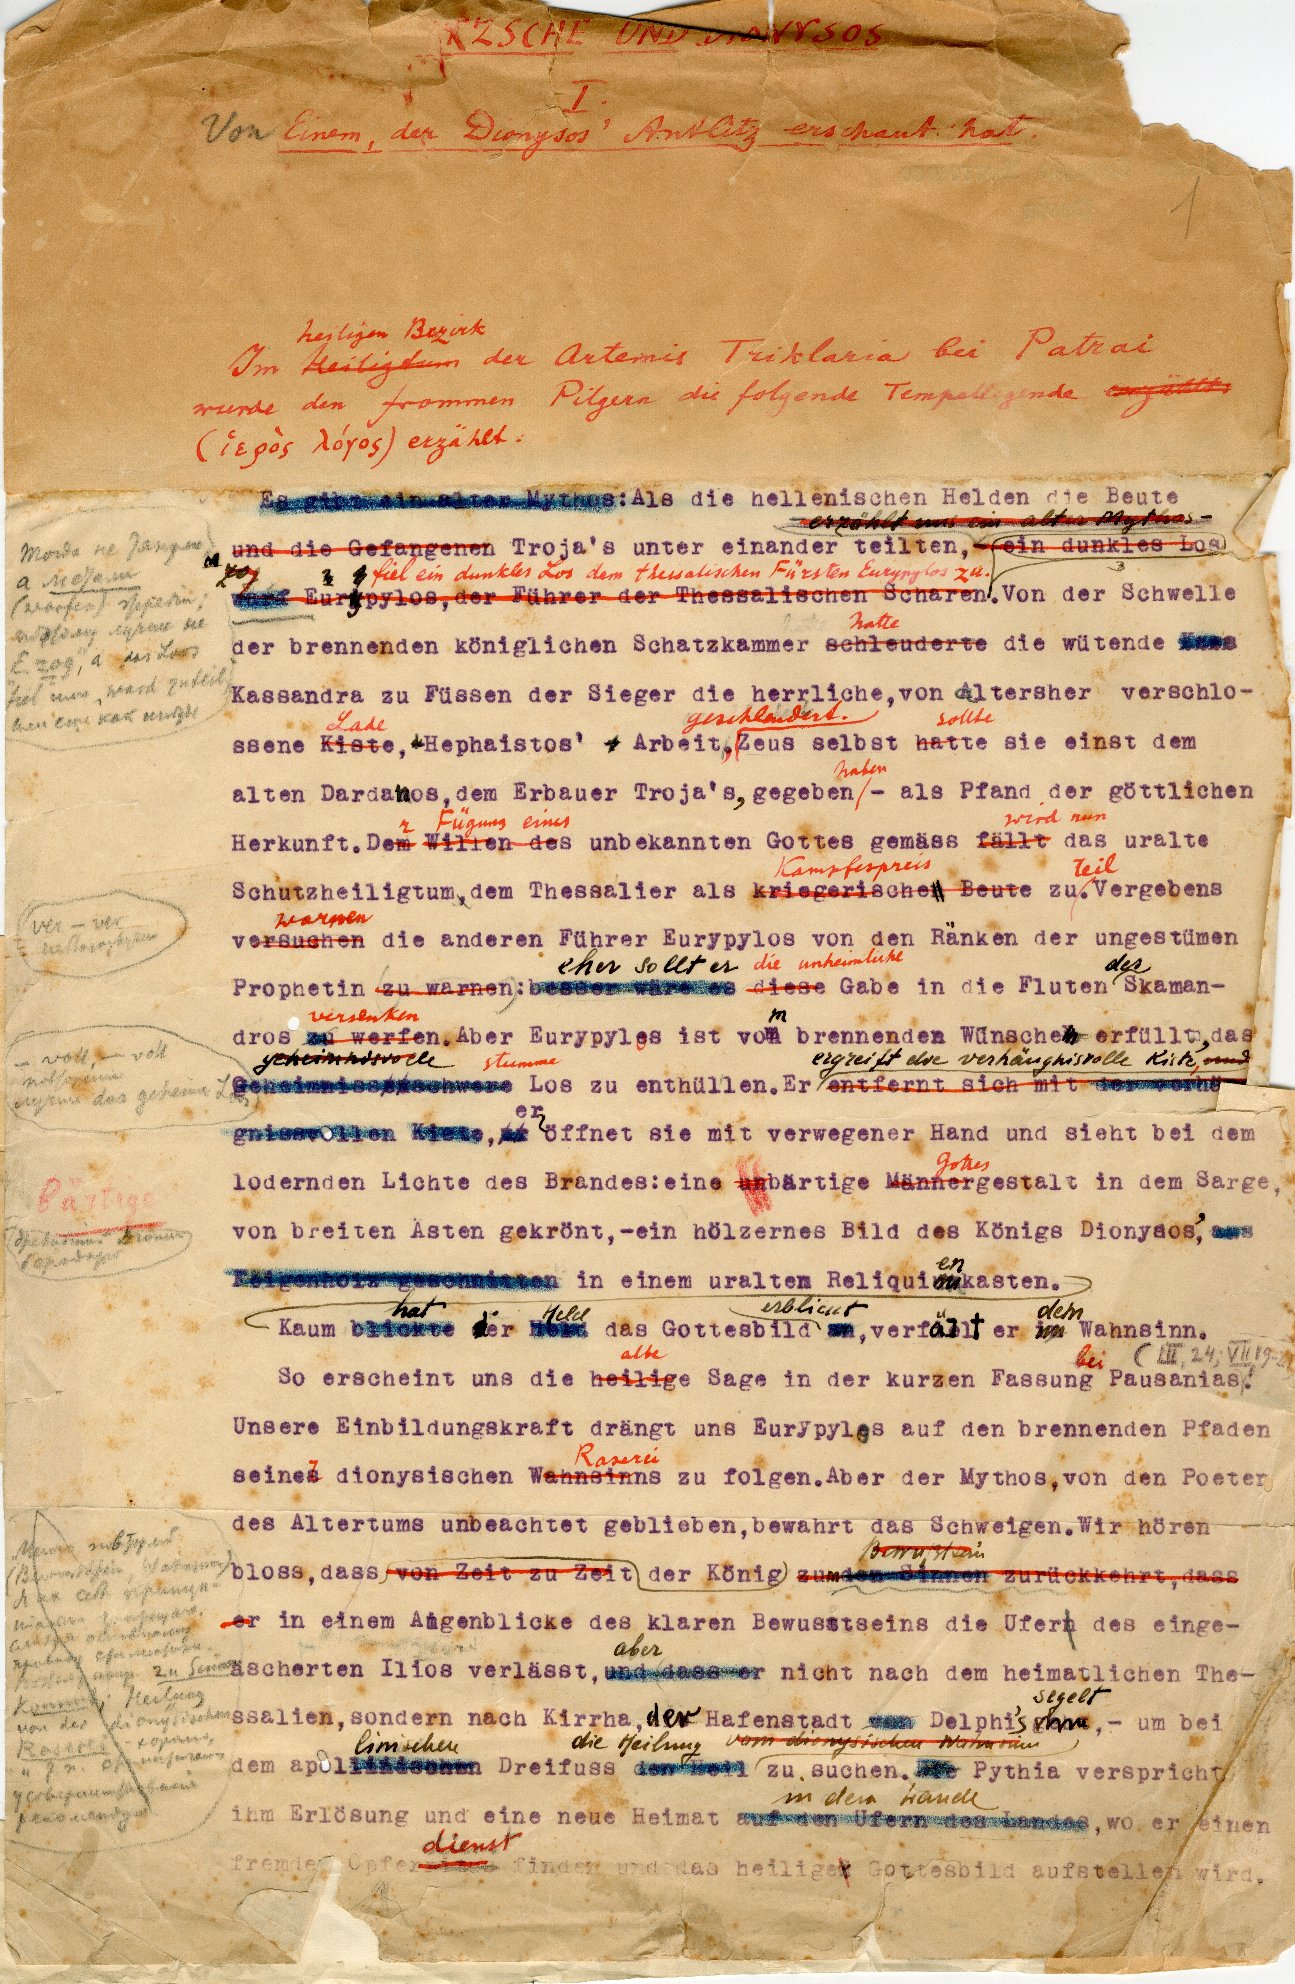 ZSCHE UND DIONYSOS
I.
Von Einem, der Dionysos' Antlitz erschaut hat.
1
heiligen Bezirk
Im Heiligtum der Artemis Triklaria bei Patrai
wurde den frommen Pilgern die folgende Tempellegende erzählt
(ἱερὸς λόγος) erzählt:
Es gibt ein alter Mythos:Als die hellenischen Helden die Beute
erzählt uns ein alter Mythos-
und die Gefangenen Troja's unter einander teilten,-(ein dunkles Los
zog fiel ein dunkles Los dem thessalischen Fürsten Eurypylos zu.
warf Eurypylos,der Führer der Thessalischen Scharen.Von der Schwelle
hatte
der brennenden königlichen Schatzkammer schleuderte die wütende
Kassandra zu Füssen der Sieger die herrliche,von Altersher verschlo-
Lade geschleudert. sollte
ssene Kiste, Hephaistos' Arbeit. Zeus selbst hatte sie einst dem
haben
alten Dardanos,dem Erbauer Troja's, gegeben - als Pfand der göttlichen
r Fügung eines wird nun
Herkunft.Dem Willen des unbekannten Gottes gemäss fällt das uralte
Kampfespreis teil
Schutzheiligtum,dem Thessalier als kriegerische Beute zu.Vergebens
warnen
versuchen die anderen Führer Eurypylos von den Ränken der ungestümen
eher sollt er die unheimliche der
Prophetin zu warnen:besser wäre es diese Gabe in die Fluten Skaman-
versenken m
dros zu werfen.Aber Eurypylos ist vom brennenden Wünschen erfüllt,das
geheimnisvolle stumme ergreift die verhängnisvolle Kiste, und
Geheimnisschwere Los zu enthüllen.Er entfernt sich mit der verhä
er
gnissvollen Kiste, öffnet sie mit verwegener Hand und sieht bei dem
Gottes
lodernden Lichte des Brandes:eine unbärtige Männergestalt in dem Sarge,
Bärtige
von breiten Ästen gekrönt,-ein hölzernes Bild des Königs Dionysos, aus
en
Feigenholz geschnitten in einem uralten Reliquienkasten.
hat Held erblickt dem
Kaum blickte der Held das Gottesbild an,verfällt er im Wahnsinn.
alte bei (III, 24; VII, 19-2
So erscheint uns die heilige Sage in der kurzen Fassung Pausanias.
Unsere Einbildungskraft drängt uns Eurypylos auf den brennenden Pfaden
Raserei
seines dionysischen Wahnsinns zu folgen.Aber der Mythos,von den Poeten
des Altertums unbeachtet geblieben,bewahrt das Schweigen.Wir hören
Bewusstsein
bloss,dass von Zeit zu Zeit der König zum den Sinnen zurückkehrt,dass
er in einem Augenblicke des klaren Bewusstseins die Ufern des einge-
aber
äscherten Ilios verlässt,und dass er nicht nach dem heimatlichen The-
segelt
ssalien,sondern nach Kirrha, der Hafenstadt von Delphi's,- um bei
linischen die Heilung vom dionysischen Wahnsinn
dem apollinischen Dreifuss den Heil zu suchen.Die Pythia verspricht
in dem Lande
ihm Erlösung und eine neue Heimat auf den Ufern des Landes,wo er einen
dienst
fremden Opfer finden und das heilige Gottesbild aufstellen wird.
ver – ver
– voll – voll
лучше das geheime L
zu Sinnen
kommen; Heilung
von der dionysischen
Raserei